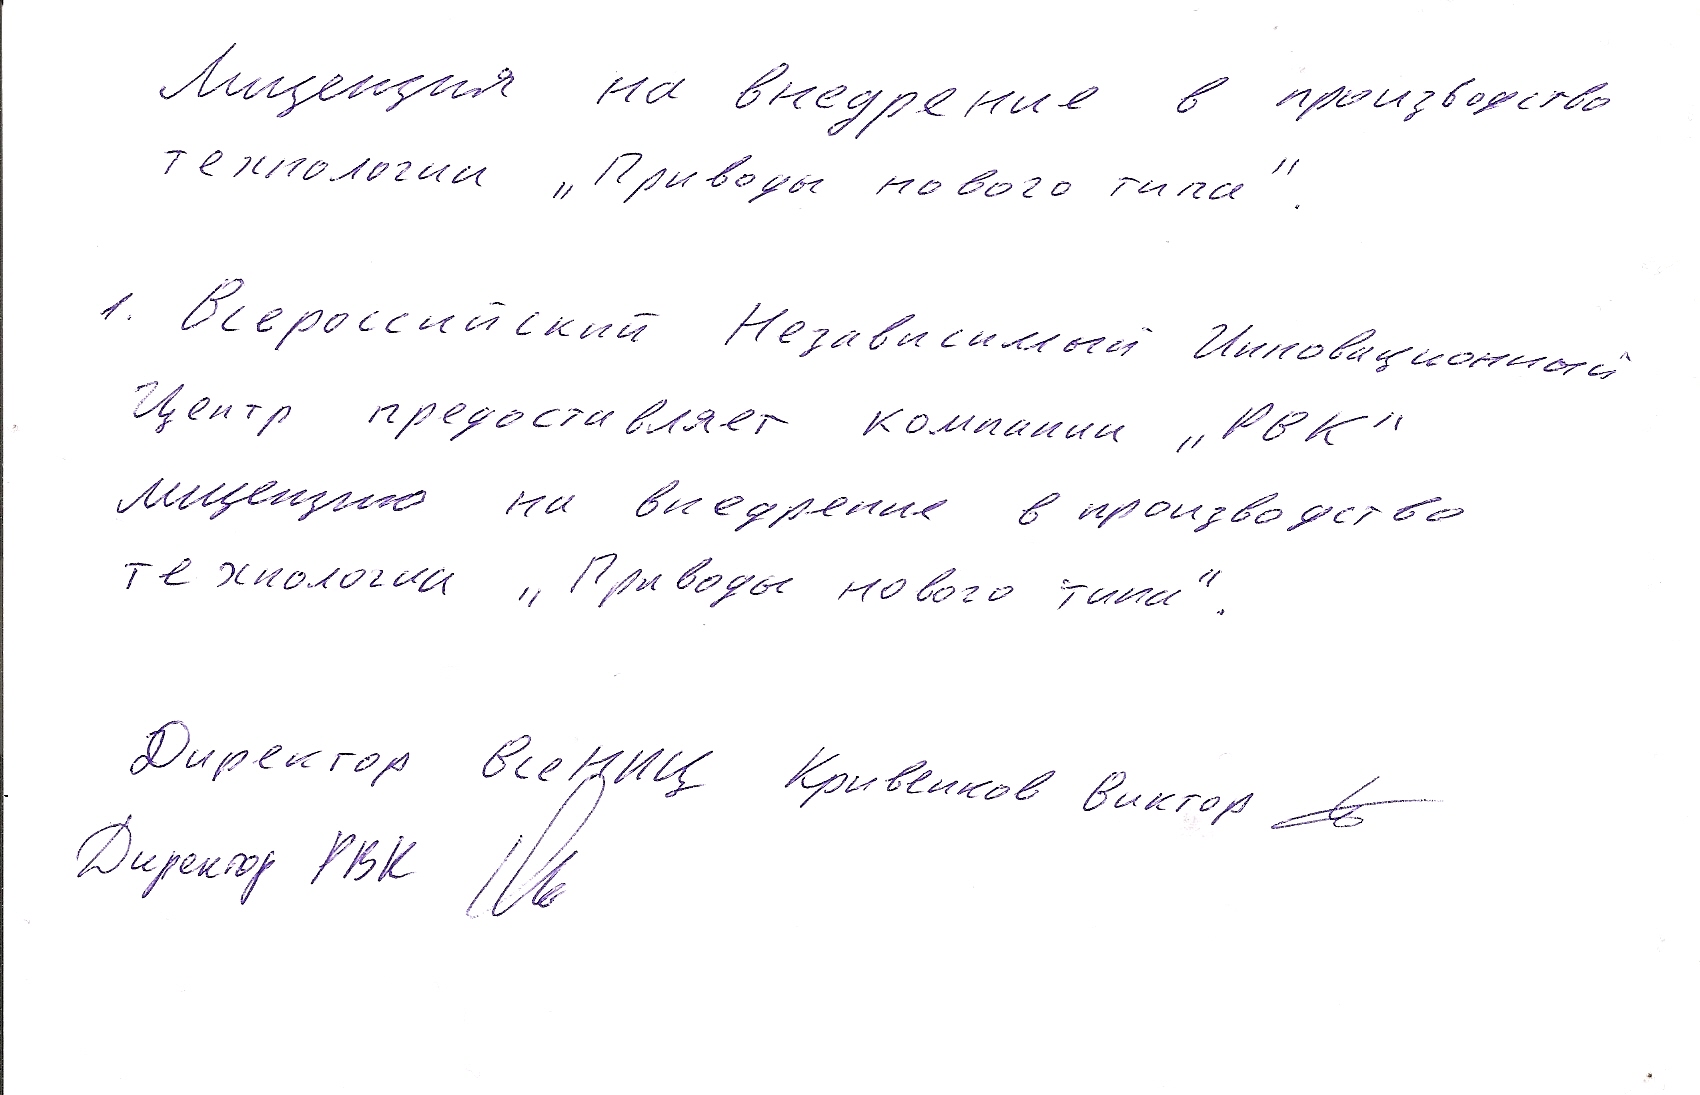 Лицензия на внедрение в производство
технологии „Приводы нового типа".
1. Всероссийский Независимый Инновационный
Центр предоставляет компании „РВК"
лицензию на внедрение в производство
технологии „Приводы нового типа".
Директор ВсеНИЦ Кривенков Виктор
Директор РВК